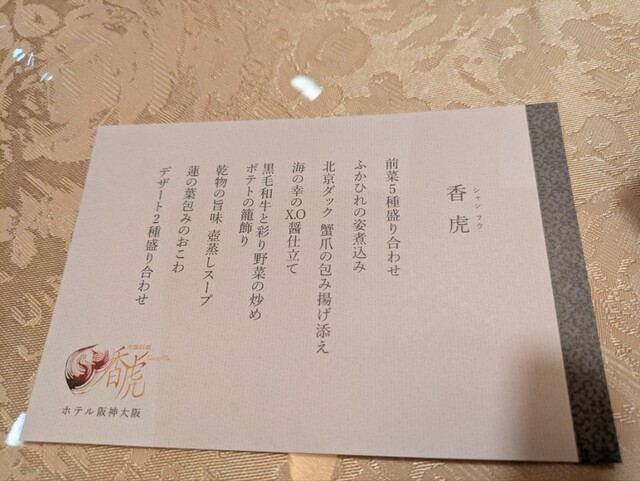 香虎
シャンフウ
前菜5種盛り合わせ
ふかひれの姿煮込み
北京ダック 蟹爪の包み揚げ添え
海の幸のX.O醤仕立て
黒毛和牛と彩り野菜の炒め
ポテトの籠飾り
乾物の旨味 壺蒸しスープ
蓮の葉包みのおこわ
デザート2種盛り合わせ
香虎
ホテル阪神大阪